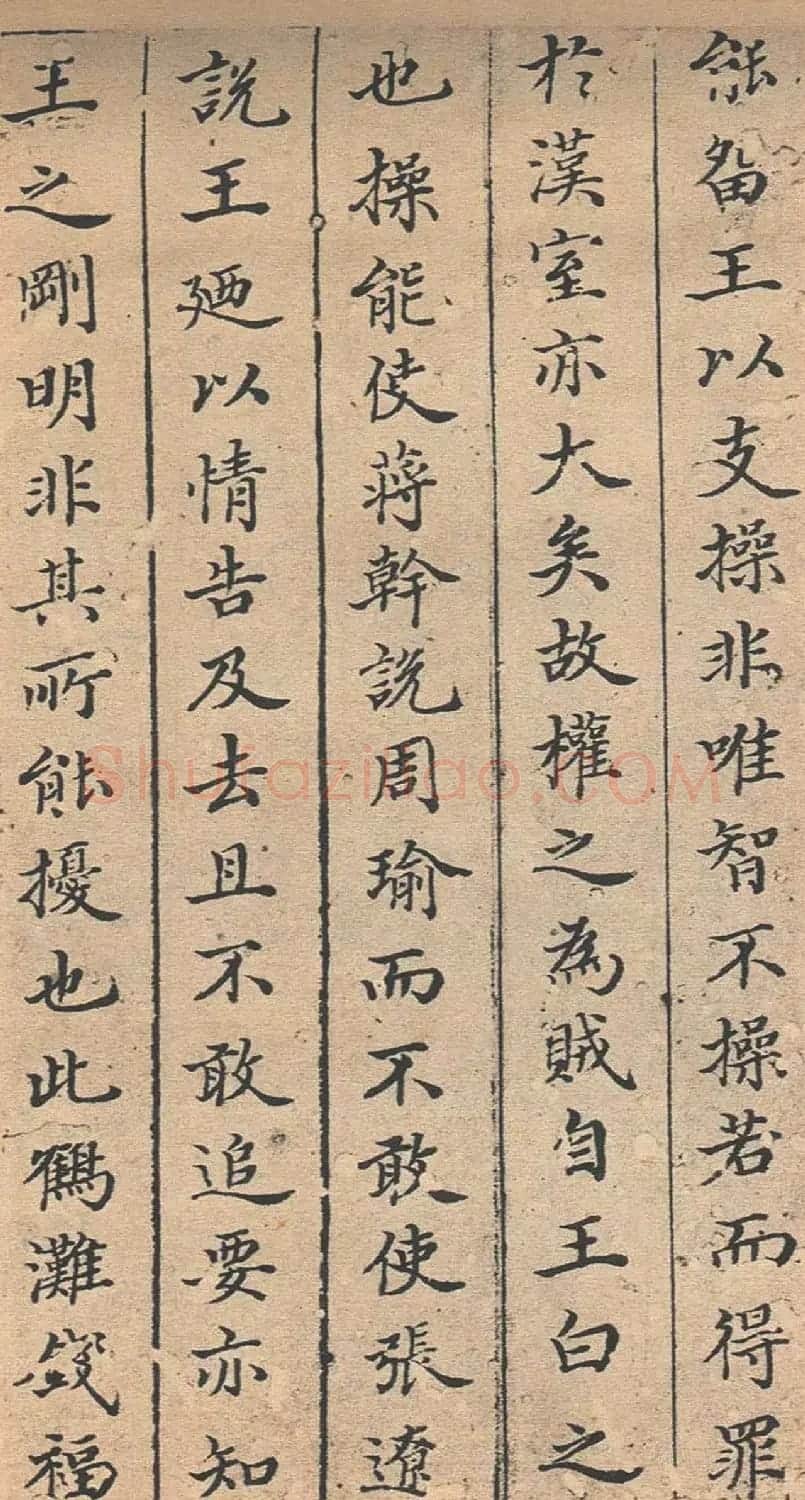 能畱王以支操非唯智不操若而得罪
於漢室亦大矣故權之為賊自王白之
也操能使蔣幹說周瑜而不敢使張遼
說王廼以情告及去且不敢追要亦知
王之剛明非其所能擾也此鶴灘錢福
shufaziliao.COM